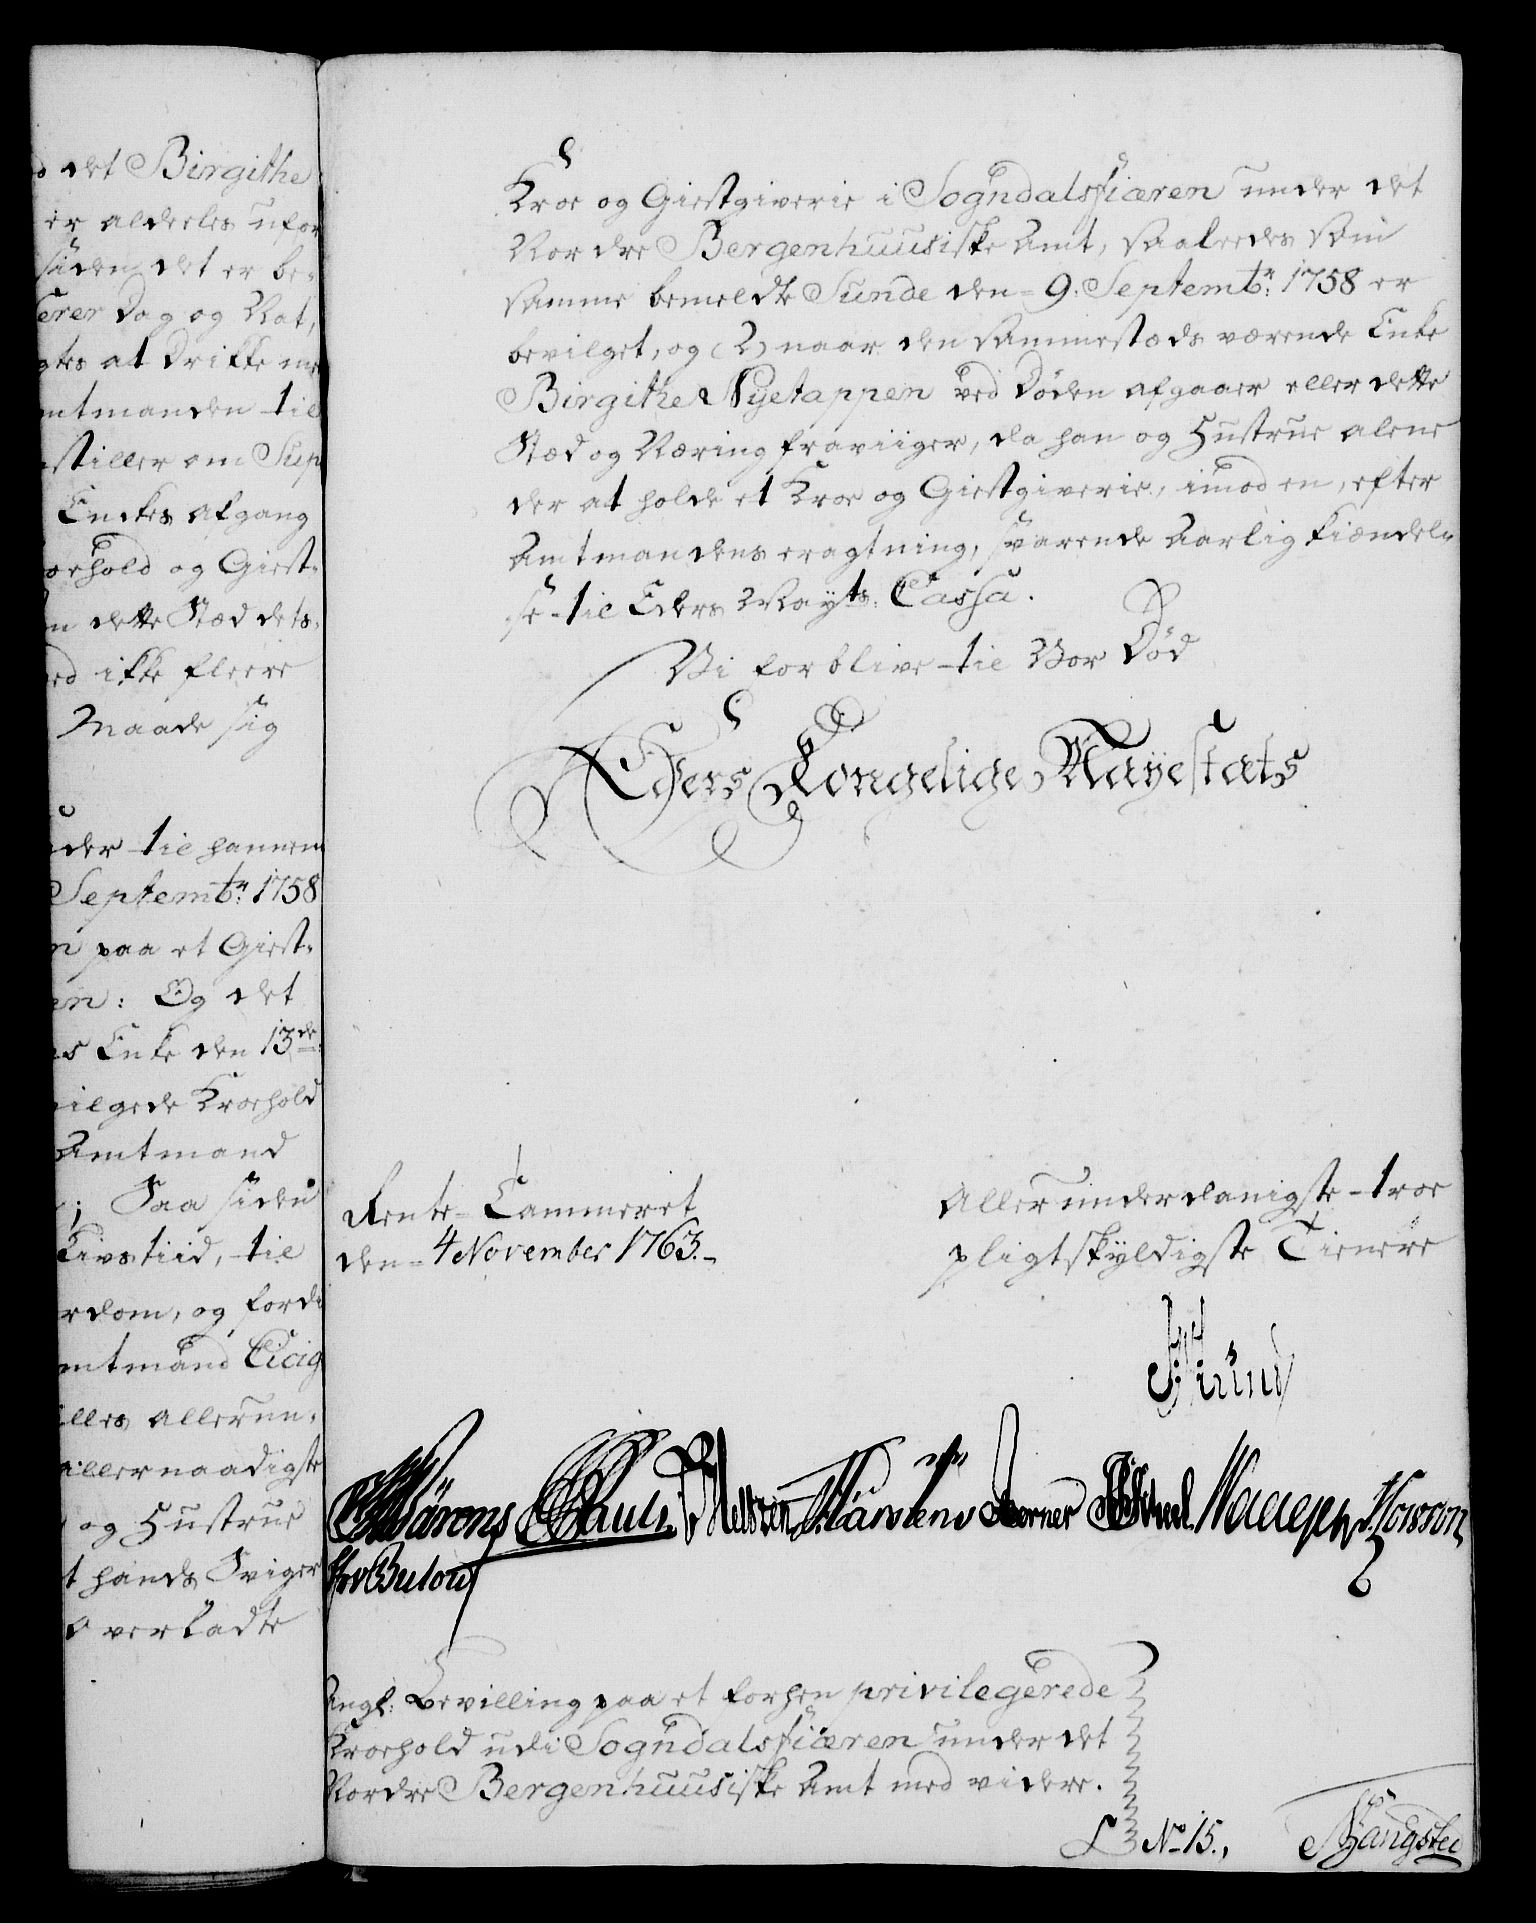 det Birgithe
er aldeeles ufor
siden det er be-
Dag og Nat,
at drikke
mtmanden til
stiller om Sup
Enckes afgang
hold og Giest-
dette Stæd dets
ikke fleere
Maade sig
der til hannem
Septembr: 1758
paa et Giest-
Og det
Enke den 13de
Kroehold
Amtmand
Saa siden
Livs tiid, til
rdom, og fordi
mtmand Cicig
lles allerun-
allernaadigste
og Hustrue
hands Sviger
overladte
Kroe og Giestgiverie i Sogndalsfiæren under det
Nordre Bergenhuusiske Amt, saaleedes som
samme bemeldte Sunde den 9. Septembr: 1758 er
bevilget, og (2) naar den sammestæds værende Enke
Birgithe Nyetappen ved Døden afgaaer eller dette
Stæd og Næring fraviiger, da han og Hustrue alene
der at holde et Kroe og Giestgiverie, imod en, efter
Amtmandens eragtning, svarende Aarlig Kiændel-
se til Eders Mayts: Cassa.
Vi forblive til Vor Død
Eders Kongelige Mayestæts
Rente-Cammeret
den 4 November 1763.
Allerunderdanigste troe
pligtskyldigste Tienere
for Bulow
Angl: Bevilling paa et forhen privilegerede
Kroehold udi Sogndalsfiæren under det
Nordre Bergenhuusiske Amt med videre.
L No 15.